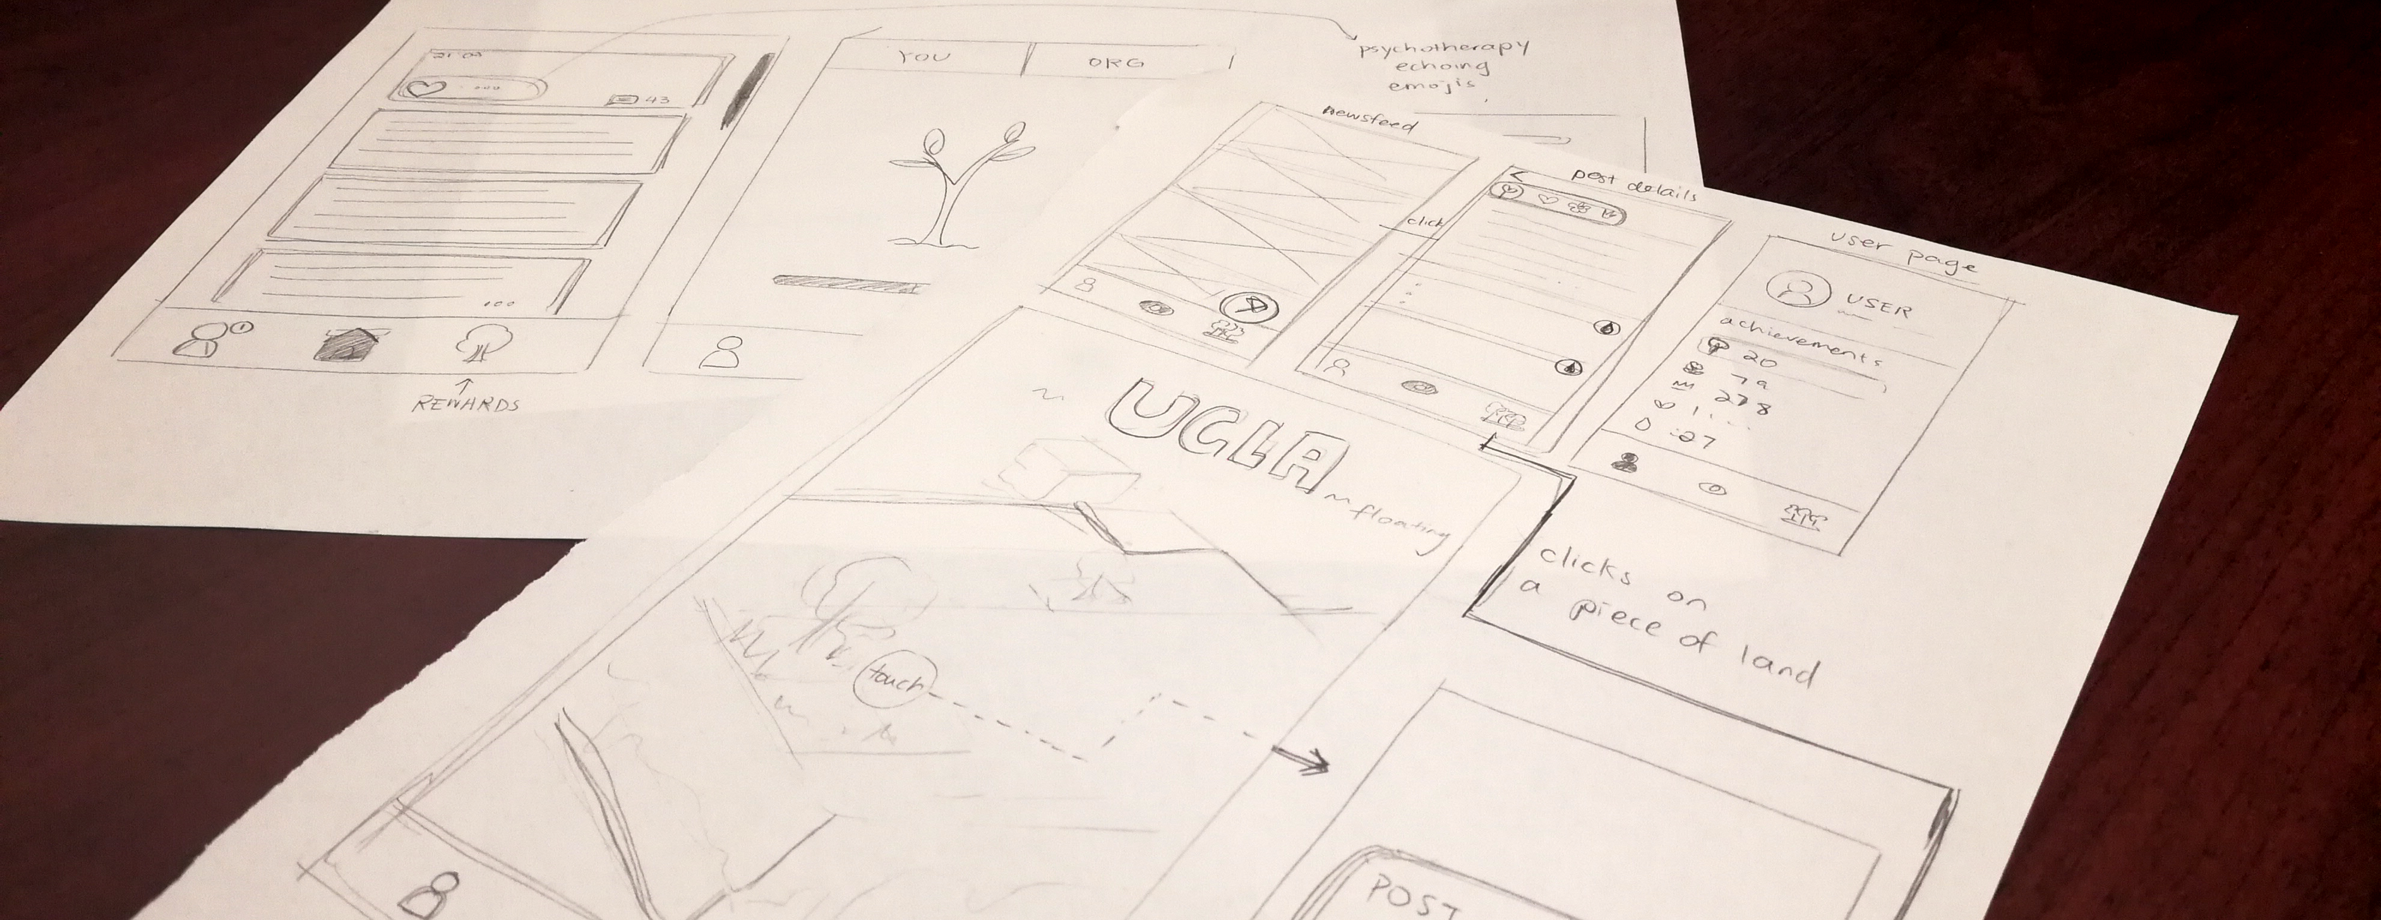 21:09
43
REWARDS
YOU
ORG
psychotherapy
echoing
emojis
newsfeed
click
post details
user page
USER
achievements
20
79
278
27
UCLA
floating
touch
clicks on
a piece of land
POST